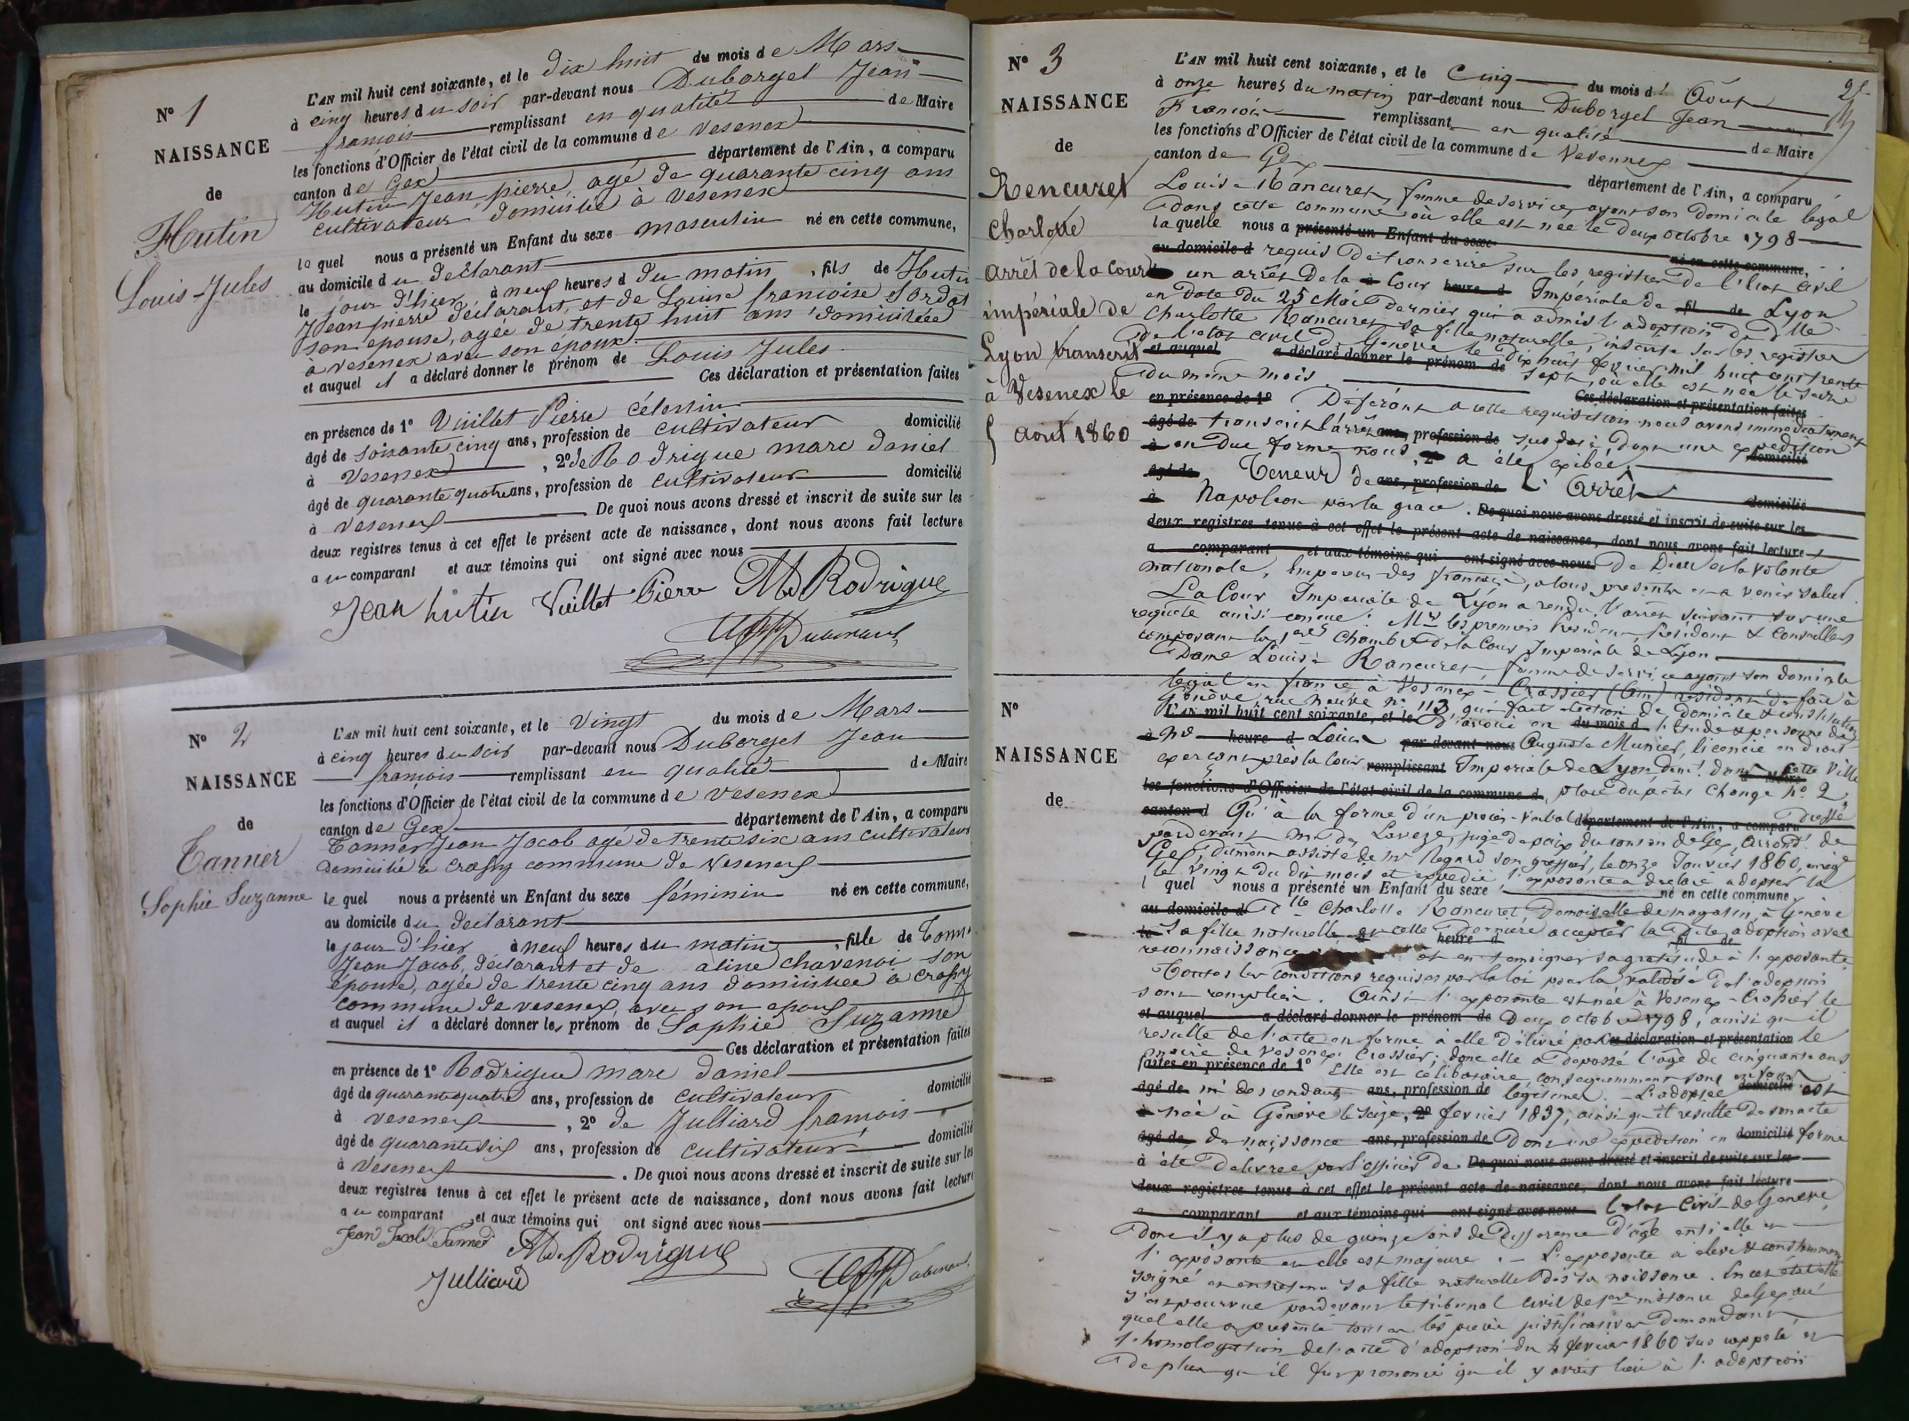 N° 1
NAISSANCE
de
Hutin
Louis-Jules
L'AN mil huit cent soixante, et le dix huit du mois de Mars
à cinq heures du soir par-devant nous Duborgel Jean
françois remplissant en qualité de Maire
les fonctions d'Officier de l'état civil de la commune de Vesenex
canton de Gex département de l'Ain, a comparu
Hutin Jean pierre, agé de quarante cinq ans
cultivateur domicilié à Vesenex
lequel nous a présenté un Enfant du sexe masculin né en cette commune,
au domicile du déclarant
le jour d'hier à neuf heures du matin, fils de Hutin
Jean pierre déclarant, et de Louise françoise Sordat
son epouse, agée de trente huit ans domiciliée
à vesenex avec son epoux.
et auquel il a déclaré donner le prénom de Louis Jules
Ces déclaration et présentation faites
en présence de 1° Vuillet Pierre Célestin
âgé de soixante cinq ans, profession de cultivateur domicilié
à Vesenex, 2° de Rodrigue marc daniel
âgé de quarante quatre ans, profession de cultivateur domicilié
à Vesenex De quoi nous avons dressé et inscrit de suite sur les
deux registres tenus à cet effet le présent acte de naissance, dont nous avons fait lecture
au comparant et aux témoins qui ont signé avec nous
Jean hutin Vuillet Pierre Md Rodrigue
N° 2
NAISSANCE
de
Tannier
Sophie Suzanne
L'AN mil huit cent soixante, et le vingt du mois de Mars
à cinq heures du soir par-devant nous Duborgel Jean
françois remplissant en qualité de Maire
les fonctions d'Officier de l'état civil de la commune de vesenex
canton de Gex département de l'Ain, a comparu
Tannier Jean Jacob agé de trente six ans cultivateur
domicilié à crassy commune de Vesenex
lequel nous a présenté un Enfant du sexe féminin né en cette commune,
au domicile du déclarant
le jour d'hier à neuf heures du matin, fille de
Jean Jacob, déclarant et de aline chavenoi son
épouse, agée de trente cinq ans domiciliée à crassy
commune de vesenex, avec son epoux
et auquel il a déclaré donner les prénom de Sophie Suzanne
Ces déclaration et présentation faites
en présence de 1° Rodrigue marc daniel
âgé de quarante quatre ans, profession de cultivateur domicilié
à vesenex, 2° de Julliard françois
âgé de quarante six ans, profession de cultivateur domicilié
à Vesenex. De quoi nous avons dressé et inscrit de suite sur les
deux registres tenus à cet effet le présent acte de naissance, dont nous avons fait lecture
au comparant et aux témoins qui ont signé avec nous
Jean Jacob Tannier Md Rodrigue
Julliard
N° 3
NAISSANCE
de
Rencurel
Charlotte
arrêt de la Cour
impériale de
Lyon transcrit
à Vesenex le
5 aout 1860
L'AN mil huit cent soixante, et le Cinq du mois d' Août
à onze heures du matin par-devant nous Duborgel Jean
François remplissant en qualité de Maire
les fonctions d'Officier de l'état civil de la commune de Vesenex
canton de Gex département de l'Ain, a comparu
Louise Rancurel, femme de service, ayant son domicile légal
dans cette commune où elle est née le deux octobre 1798
laquelle nous a présenté un Enfant du sexe né en cette commune,
au domicile d requis de transcrire sur les registres de l'état civil
un arrêt de la Cour heure d Impériale de fil de Lyon
en date du 25 Mai dernier qui a admis l'adoption de Dlle
Charlotte Rancurel sa fille naturelle, inscrite sur les registres
de l'etat civil de Genève le dix huit fevrier mil huit cent trente
et auquel a déclaré donner le prénom de sept, où elle est née le seize
du même mois Ces déclaration et présentation faites
en présence de 1° Déférant à cette requisition nous avons immédiatement
âgé de transcrit l'arrêt ans, profession de sus daté dont une expédition
à en due forme nous 2° a été exibée. domicilié
âgé de Teneur de ans, profession de l'Arrêt domicilié
à Napoléon par la grace. De quoi nous avons dressé et inscrit de suite sur les
deux registres tenus à cet effet le présent acte de naissance, dont nous avons fait lecture
a comparant et aux témoins qui ont signé avec nous de Dieu et la volonté
nationale, Empereur des français, à tous présents et à venir salut
La Cour Impériale de Lyon a rendu l'arrêt suivant sur une
requête ainsi conçue: Mrs les premier Président, Président & Conseillers
composant la 1ere Chambre de la Cour Impériale de Lyon
Dame Louise Rancurel, femme de service ayant son domicile
N°
NAISSANCE
de
légal en france à Vesenex-Crassier (Ain) résidant de fait à
Genève rue neuve n° 113 qui fait élection de domicile & constitution
L'AN mil huit cent soixante, et le d'avoué en du mois d l'étude & personne de
à Me heure d Louis par-devant nous Auguste Munier, licencié en droit
exerçant près la Cour remplissant Impériale de Lyon demt dans cette Ville
les fonctions d'Officier de l'état civil de la commune d place du petit Change n° 2
canton d Qu'à la forme d'un procès-verbal département de l'Ain, a comparu dressé
pardevant Mr de Laveze, juge de paix du canton de Gex, arrond. de
Gex, dument assisté de Mr Regard son greffier, le onze Janvier 1860, enregé
le vingt du dit mois et expédié l'exposante a déclaré adopter la
l quel nous a présenté un Enfant du sexe né en cette commune,
au domicile d Dlle Charlotte Rancurel, Demoiselle de magasin, à Genève
le sa fille naturelle et celle dernière heure d accepter la dite adoption avec
reconnaissance fil de et en temoigner sa gratitude à l'exposante.
Toutes les conditions requises par la loi pour la validité de l'adoption
sont remplies. Ainsi l'exposante est née à Vesenex-Crassier le
et auquel a déclaré donner le prénom de Deux octobre 1798, ainsi qu'il
resulte de l'acte en forme à elle délivré par Ces déclaration et présentation le
maire de Vesenex Crassier; donc elle a dépassé l'age de cinquante ans
faites en présence de 1° Elle est celibataire, consequemment sans enfans
âgé de ni descendants ans, profession de légitimes. - L'adoptée domicilié est
à née à Genève le seize, 2° fevrier 1837, ainsi qu'il resulte de son acte
âgé de de naissance ans, profession de dont une expédition en domicilié forme
à été délivrée par l'officier de De quoi nous avons dressé et inscrit de suite sur les
deux registres tenus à cet effet le présent acte de naissance, dont nous avons fait lecture
a comparant et aux témoins qui ont signé avec nous l'etat Civil de Genève,
donc il y a plus de quinze ans de difference d'âge entre elle et
l'exposante et elle est majeure. - L'exposante a élevé & constamment
soigné et entretenu sa fille naturelle dès sa naissance. En cet état elle
s'est pourvue pardevant le tribunal civil de 1ere instance de Gex au
quel elle a présenté toutes les pièces justificatives demandant
l'homologation de l'acte d'adoption du fevrier 1860 sus rappelé et
de plus qu'il fut prononcé qu'il y avait lieu à l'adoption